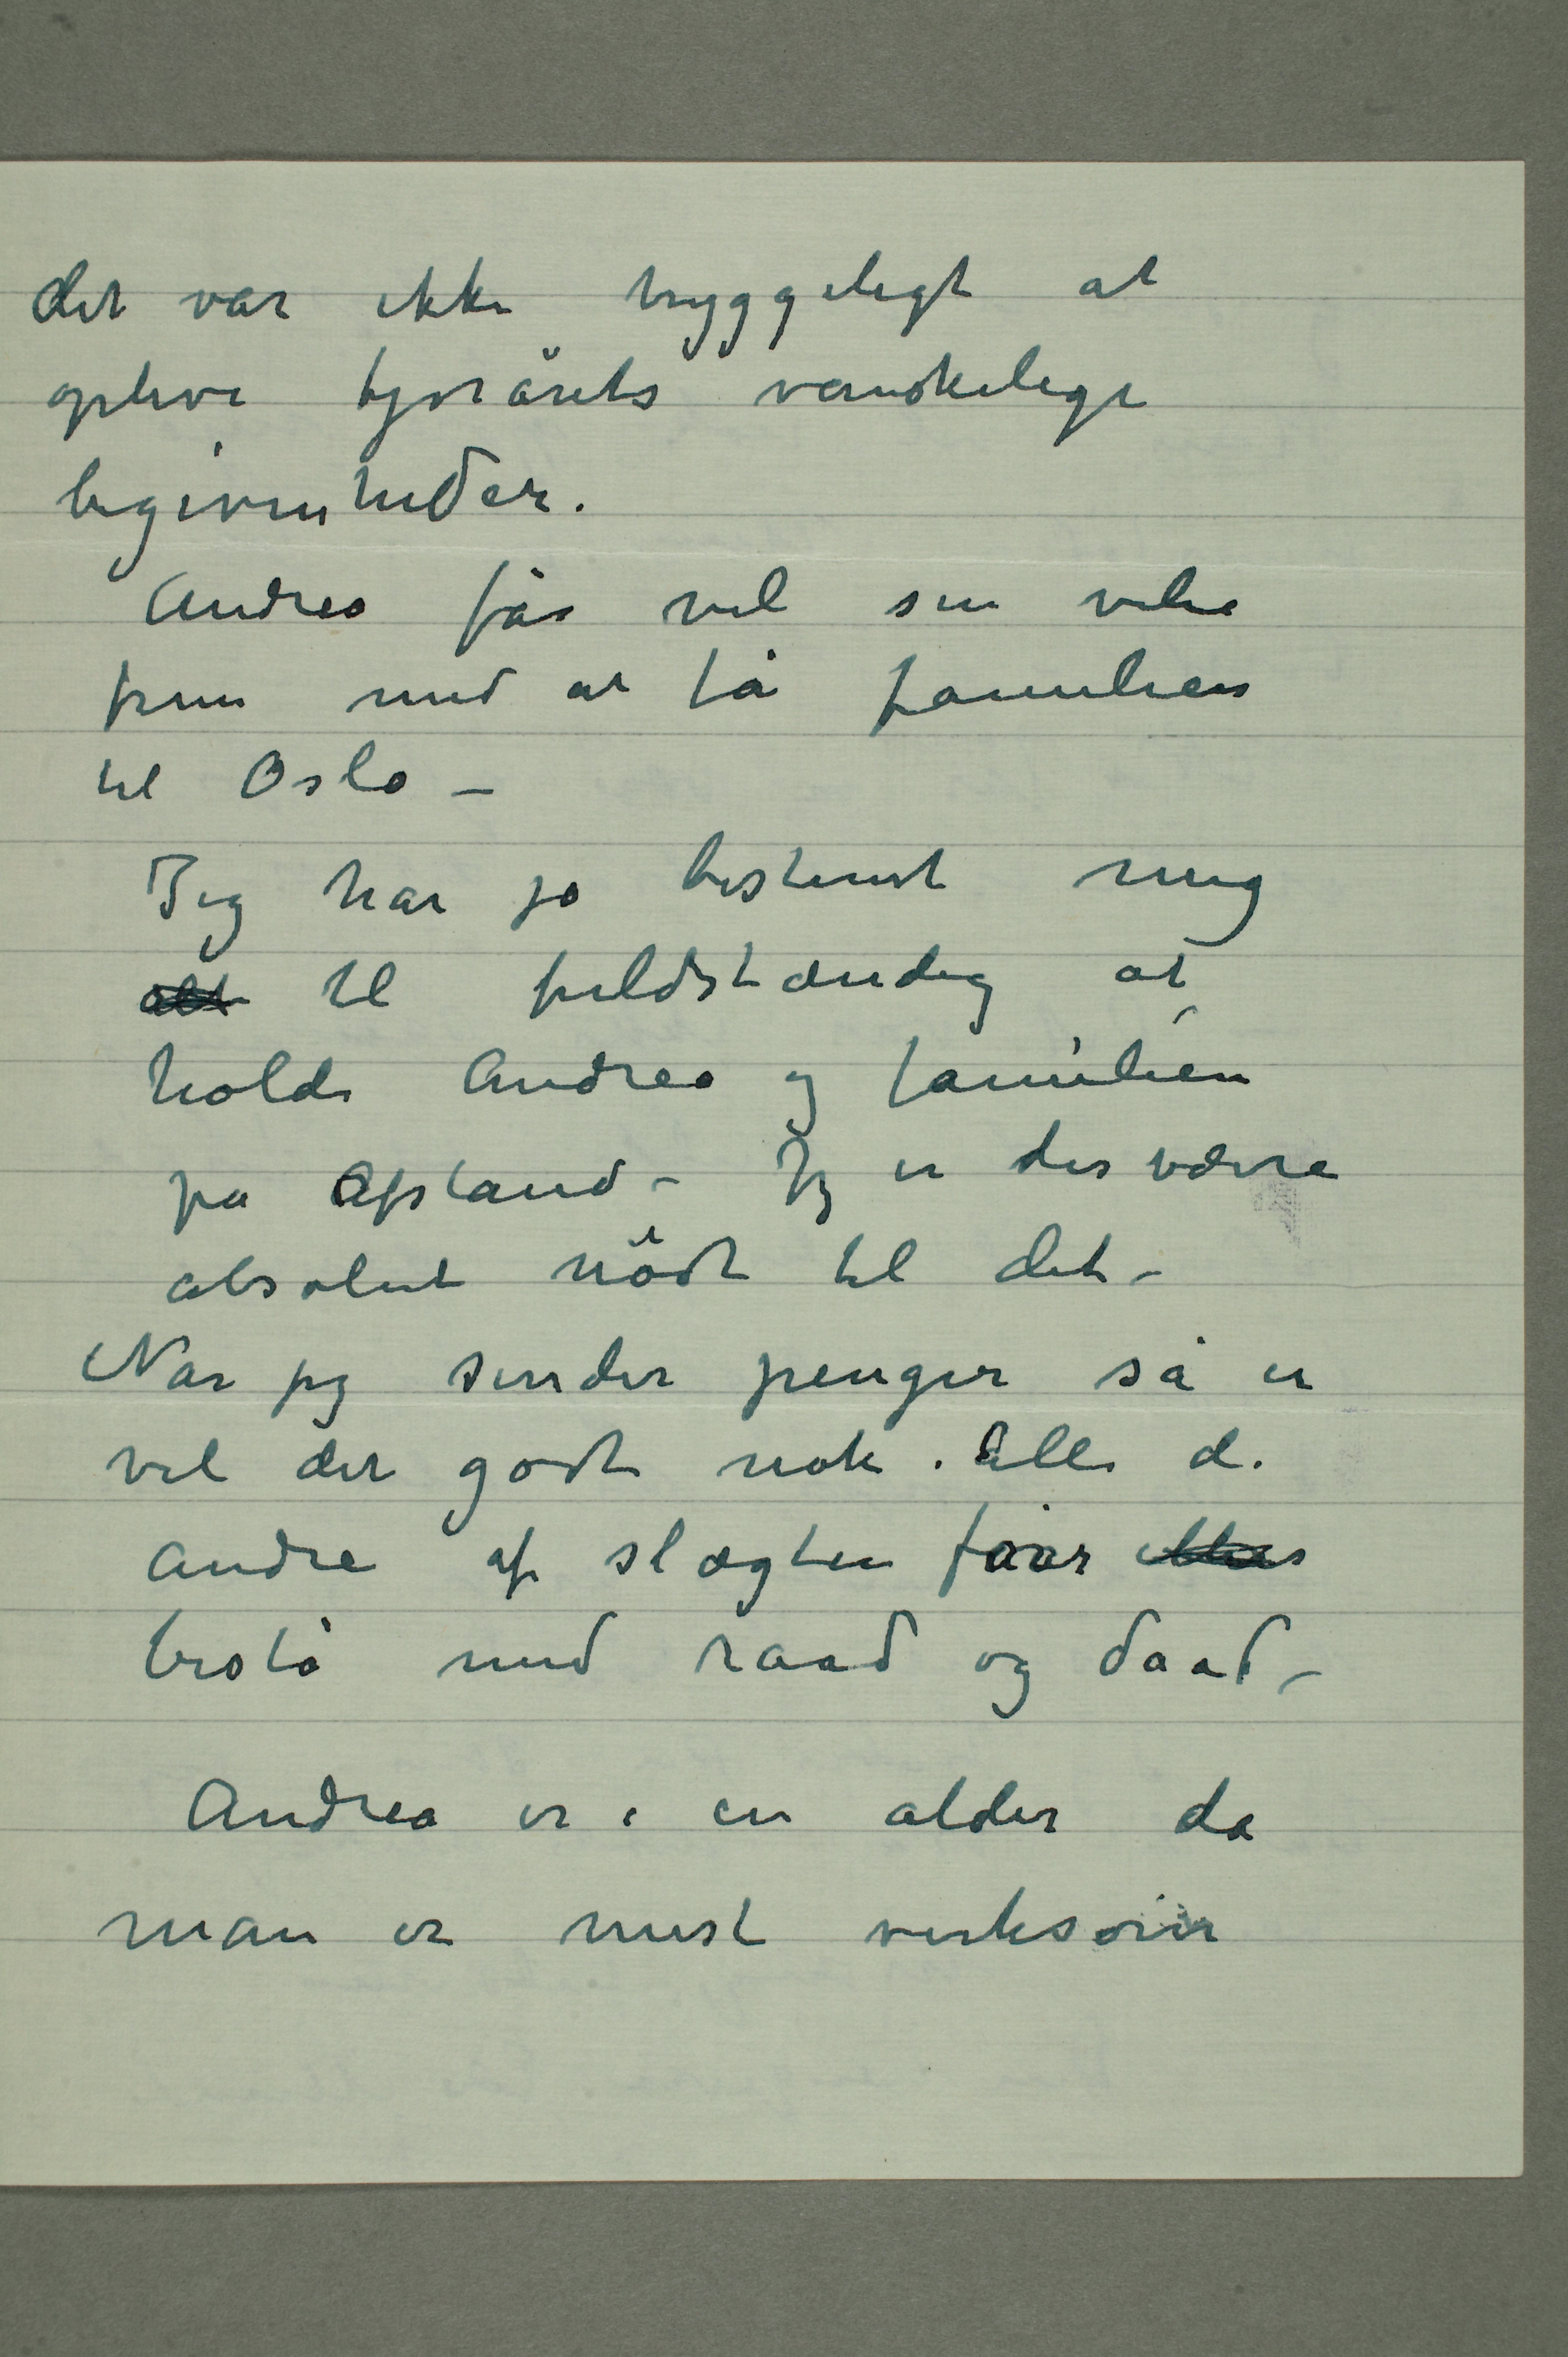 det var ikke hyggeligt at
opleve fjorårets vanskelige
begivenheder.
Andrea får vel sin vilie
frem med at få familien
til Oslo –
Jeg har jo bestemt mig
alt til fuldstændig at
holde Andrea og familien
på afstand – Jeg er desværre
absolut nödt til det –
Når jeg sender penger så er
vel det godt nok. Alle de
andre af slægten får
bistå med raad og daad –
Andrea er i en alder da
man er mest virksom